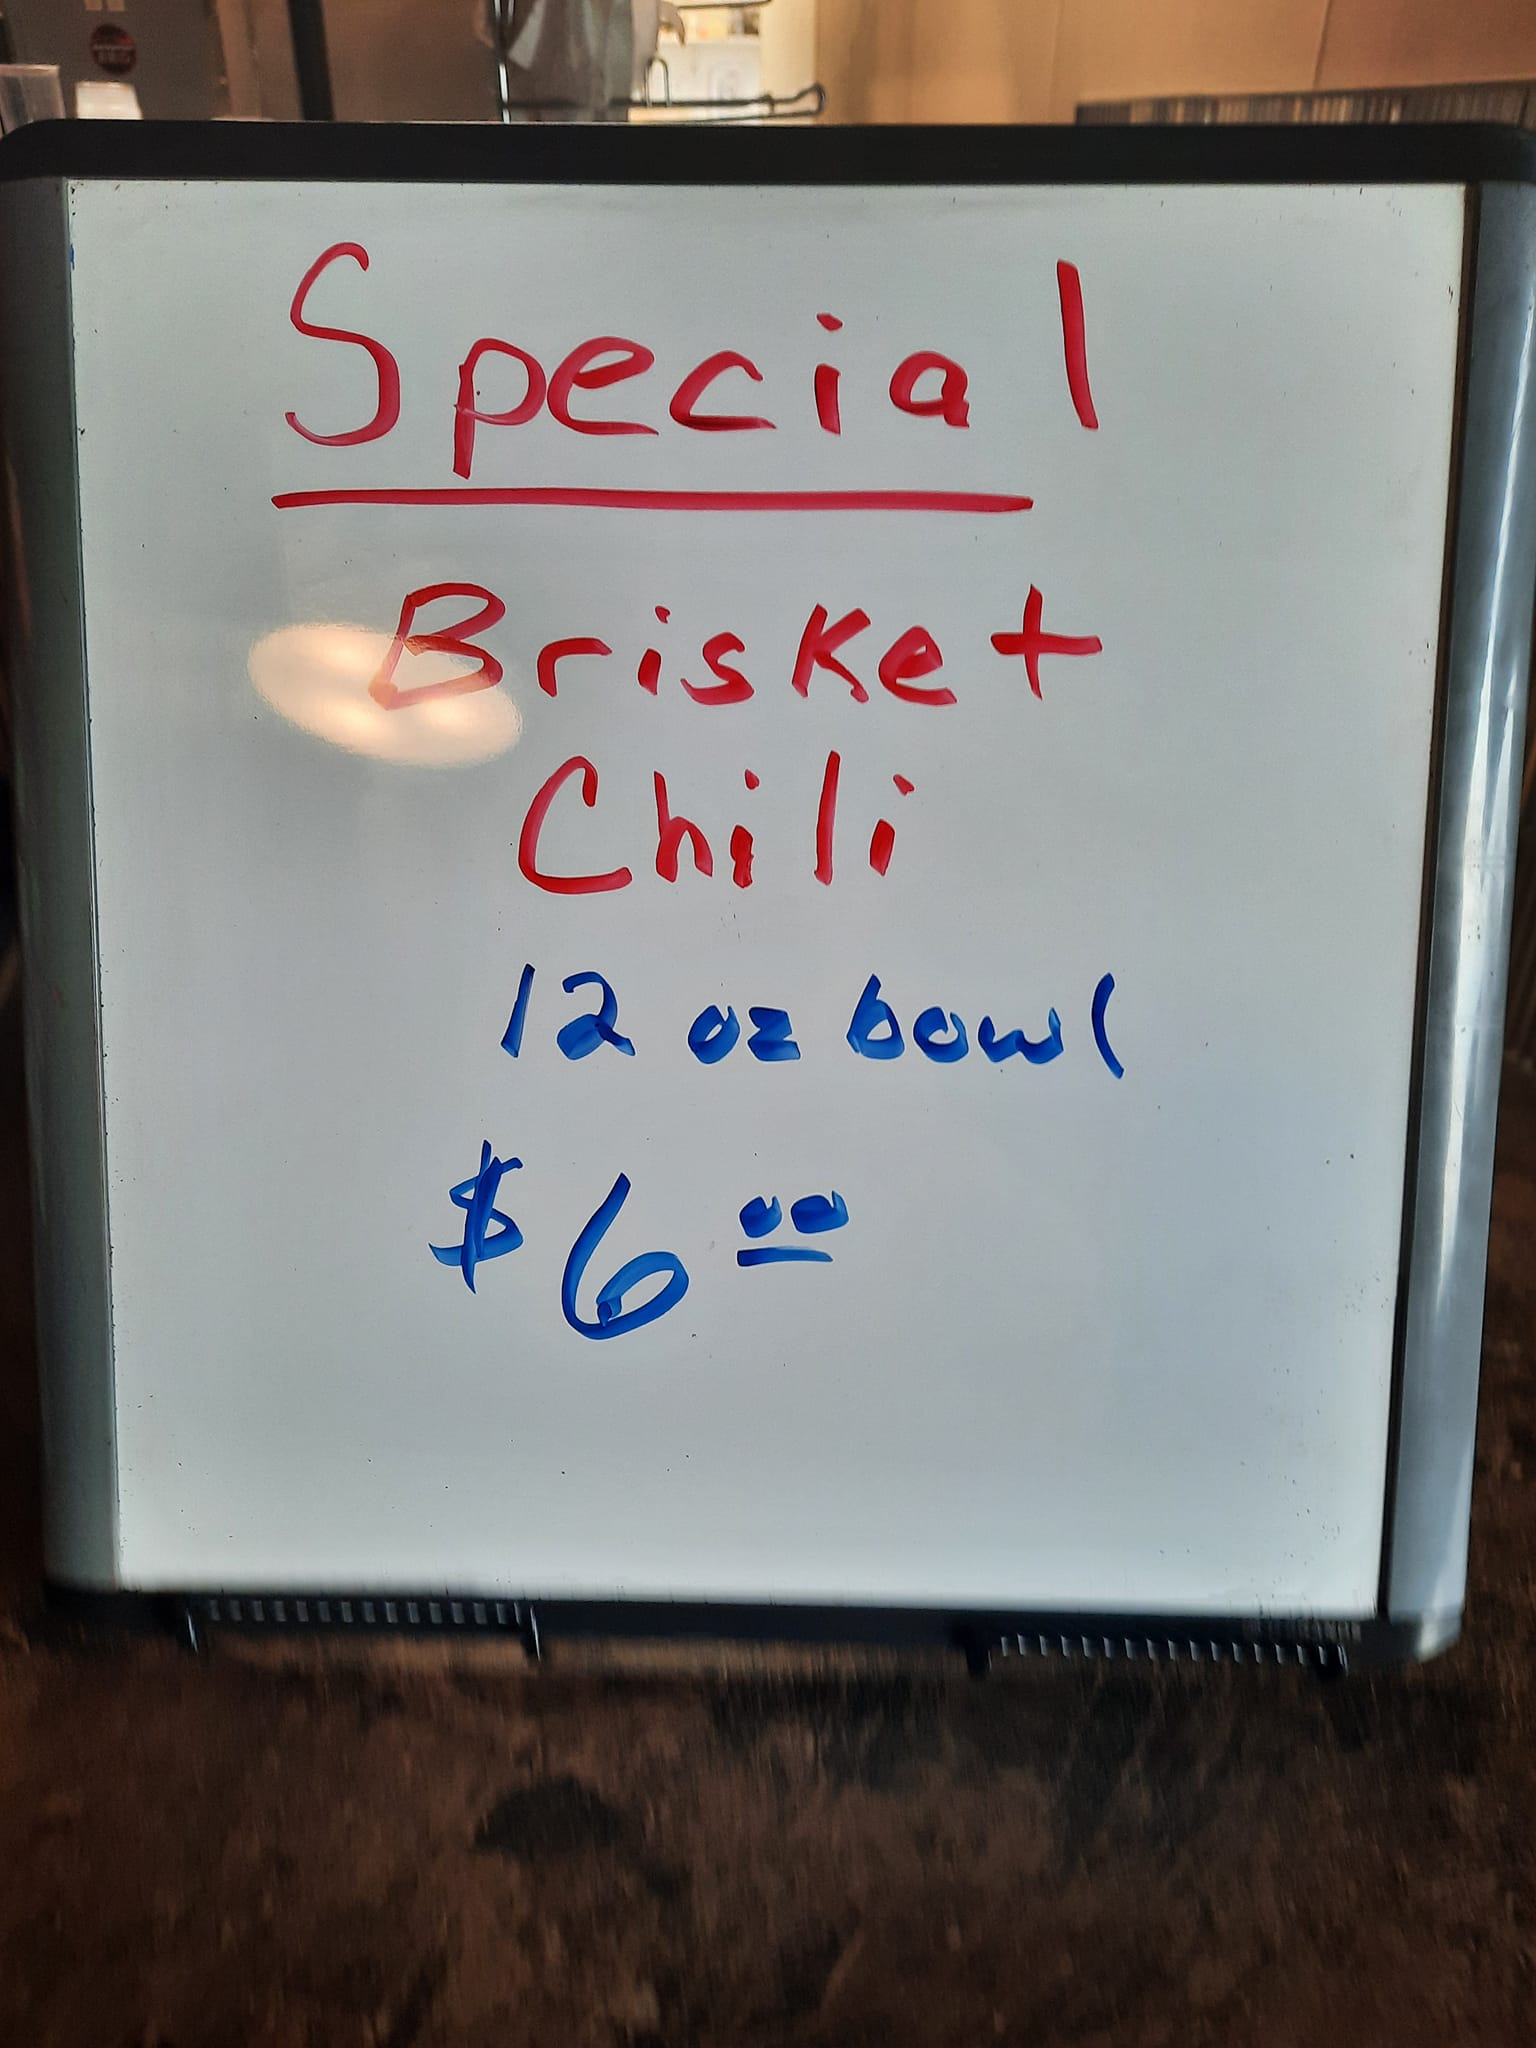 Special
Brisket
Chili
12 oz bowl
$6.00